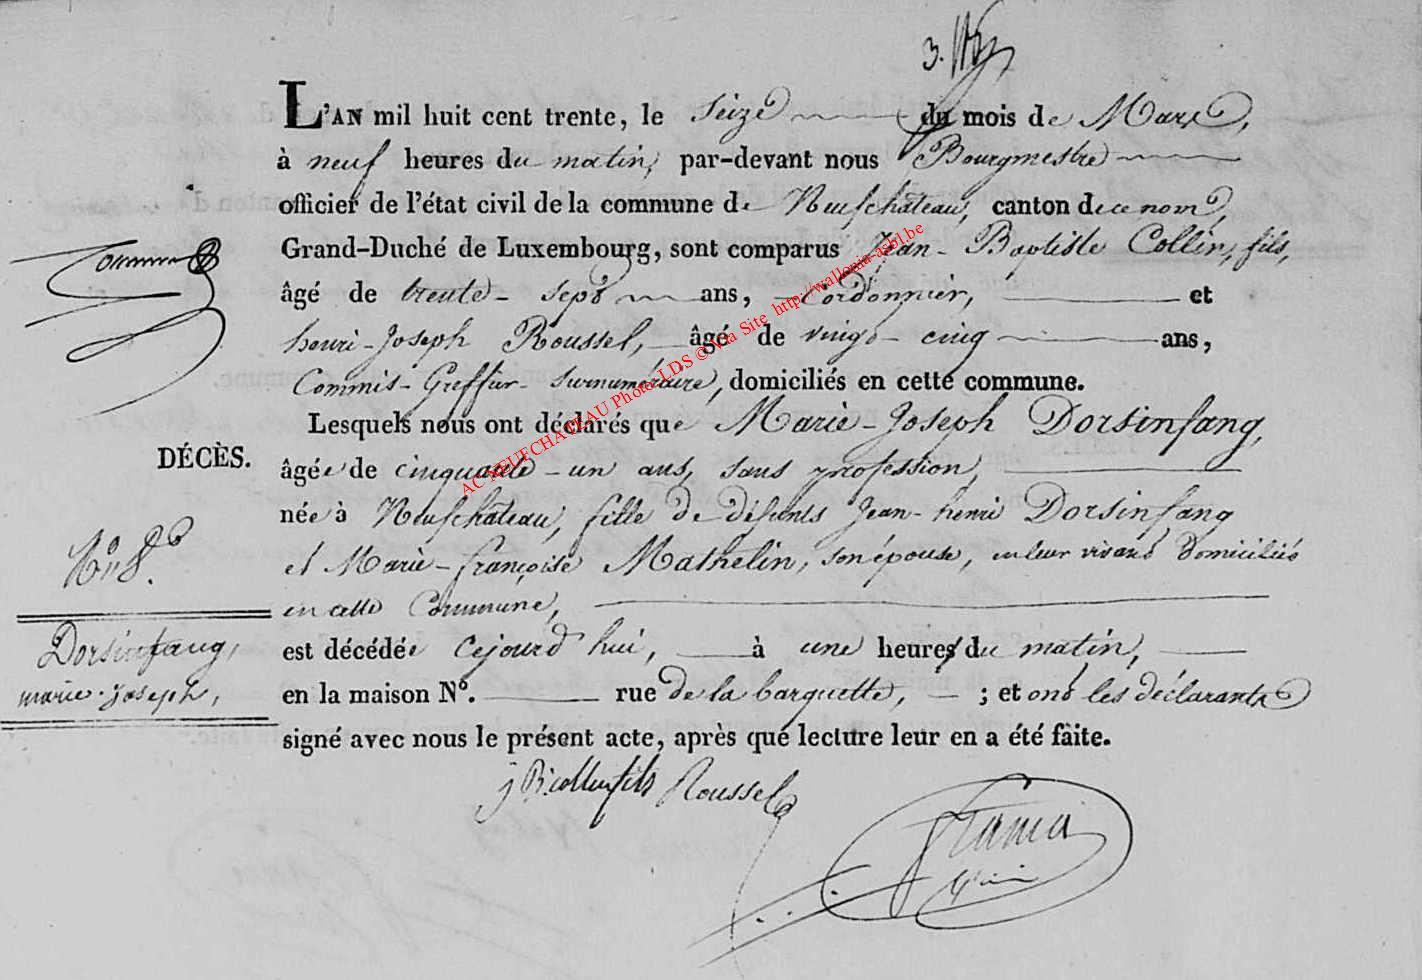 3.
L'AN mil huit cent trente, le Seize du mois de Mars,
à neuf heures du matin, par-devant nous Bourgmestre
officier de l'état civil de la commune de Neufchâteau, canton de ce nom,
Grand-Duché de Luxembourg, sont comparus Jean-Baptiste Collin, fils,
âgé de trente-sept ans, Cordonnier, et
henri-Joseph Roussel, âgé de vingt-cinq ans,
Commis-Greffier-Surnuméraire, domiciliés en cette commune.
Lesquels nous ont déclarés que Marie-Joseph Dorsinfang,
DÉCÈS.
âgée de cinquante-un ans, sans profession,
née à Neufchâteau, fille de défunts Jean-henri Dorsinfang
et Marie-françoise Mathelin, son épouse, en leur vivant domiciliés
N° 8.
en cette Commune,
Dorsinfang,
marie-Joseph,
est décédée cejourd'hui, à une heure du matin,
en la maison N°. rue de la barquette, ; et ont les déclarants
signé avec nous le présent acte, après que lecture leur en a été faite.
j B collin fils Roussel
AC NEUFCHATEAU Photo LDS © Via Site http://wallonia-asbl.be